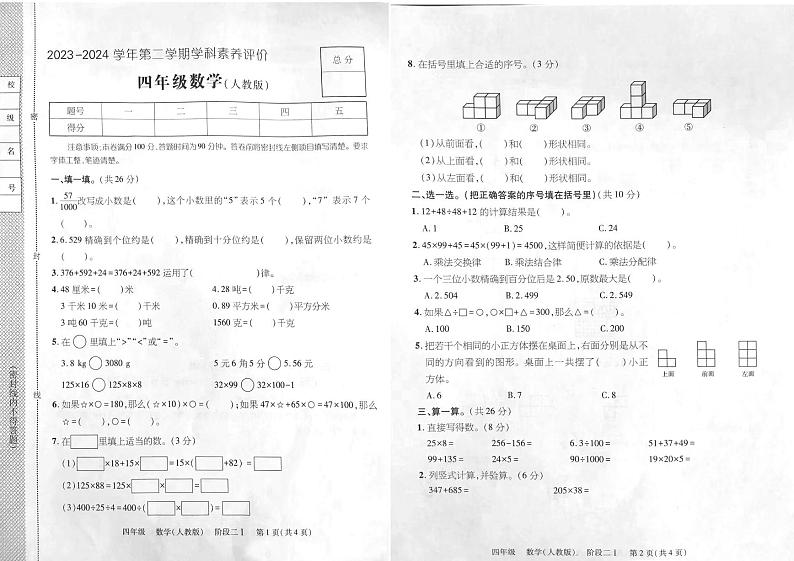 校
级
名
号
密
封
线
(密封线内不得答题)
2023-2024 学年第二学期学科素养评价
四年级数学(人教版)
总 分
题号 一 二 三 四 五
得分
注意事项:本卷满分100分,答题时间为90分钟。答卷前将密封线左侧项目填写清楚。要求
字体工整,笔迹清楚。
一、填一填。(共26分)
1. 57/1000 改写成小数是( ),这个小数里的“5”表示5个( ),“7”表示7个
( )。
2. 6.529 精确到个位约是( ),精确到十分位约是( ),保留两位小数约是
( )。
3. 376+592+24=376+24+592 运用了( )律。
4. 48厘米=( )米 4.28吨=( )千克
3千米10米=( )千米 0.89平方米=( )平方分米
3吨60千克=( )吨 1560克=( )千克
5. 在○里填上“>”“<”或“=”。
3.8 kg ○ 3080 g 5元6角5分 ○ 5.56元
125×16 ○ 125×8×8 32×99 ○ 32×100-1
6. 如果☆×○=180,那么(☆×10)×○=( );如果47×☆+65×○=47×100,那么
☆=( ),○=( )。
7. 在□里填上适当的数。(3分)
(1)□×18+15×□=15×(□+82)=□
(2)125×88=125×□×□=□
(3)400÷25÷4=400÷(□×□)=□
四年级 数学(人教版) 阶段二1 第1页(共4页)
8. 在括号里填上合适的序号。(3分)
① ② ③ ④ ⑤
(1)从前面看,( )和( )形状相同。
(2)从上面看,( )和( )形状相同。
(3)从左面看,( )和( )形状相同。
二、选一选。(把正确答案的序号填在括号里)(共10分)
1. 12+48÷48+12 的计算结果是( )。
A. 1 B. 25 C. 24
2. 45×99+45=45×(99+1)=4500,这样简便计算的依据是( )。
A. 乘法交换律 B. 乘法结合律 C. 乘法分配律
3. 一个三位小数精确到百分位后是2.50,原数最大是( )。
A. 2.504 B. 2.499 C. 2.549
4. 如果△÷□=○,○×□+△=300,那么△=( )。
A. 100 B. 150 C. 200
5. 把若干个相同的小正方体摆在桌面上,右面分别是从不
同的方向看到的图形。桌面上一共摆了( )小正
方体。
上面 前面 左面
A. 6 B. 7 C. 8
三、算一算。(共26分)
1. 直接写得数。(8分)
25×8= 256-156= 6.3÷100= 51+37+49=
99+135= 24×5= 90÷1000= 19×20×5=
2. 列竖式计算,并验算。(6分)
347+685= 205×38=
四年级 数学(人教版) 阶段二1 第2页(共4页)